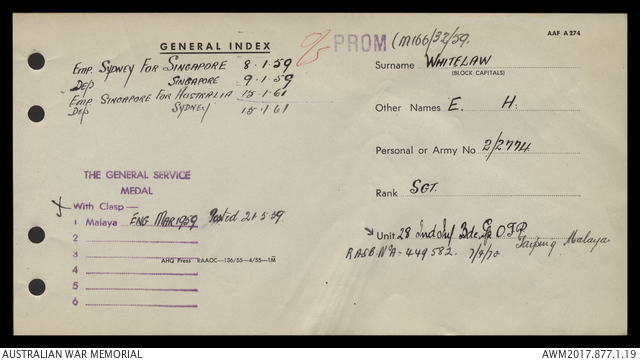 AAF A 274
GENERAL INDEX
PROM (M166/32/59.
Emp. SYDNEY FOR SINGAPORE 8.1.59
Dep SINGAPORE 9.1.59
Emp. SINGAPORE FOR AUSTRALIA 15.1.61
Dep SYDNEY 15.1.61
Surname WHITELAW
(BLOCK CAPITALS)
Other Names E. H.
Personal or Army No. 2/2774
Rank SGT.
Unit 28 Ind Inf Bde Gp O.F.P. Taiping Malaya
RASB No A-449582. 7/9/70
THE GENERAL SERVICE
MEDAL
With Clasp—
1 Malaya ENG MAR 1959 Posted 21.5.59
2
3
4
5
6
AHQ Press RAAOC—136/55—4/55—1M
AUSTRALIAN WAR MEMORIAL
AWM2017.877.1.19